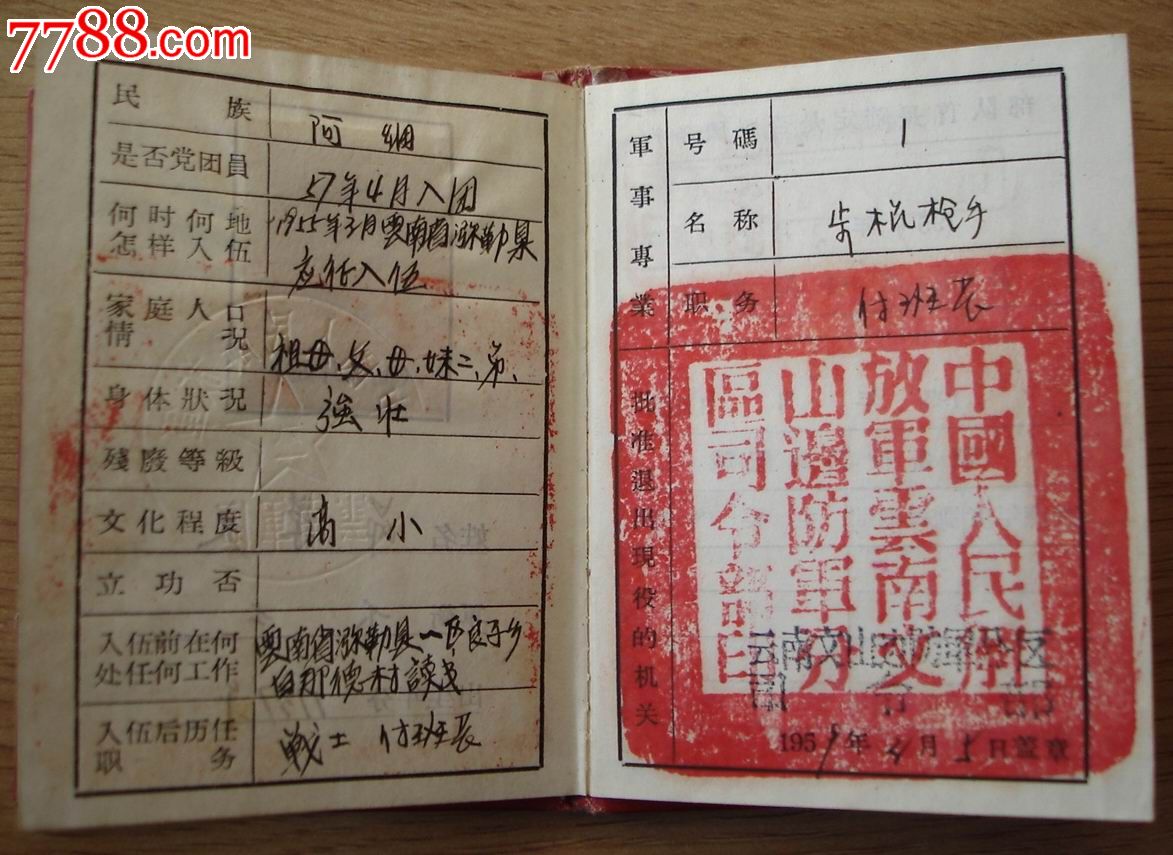 7788.com
民族
阿细
是否党团員
57年4月入团
何时何地
怎样入伍
1955年3月雲南省弥勒县
应征入伍
家庭人口
情况
祖母、父、母、妹二、弟、
身体狀況
強壮
殘廢等級
文化程度
高小
立功否
入伍前在何
处任何工作
雲南省弥勒县一区良子乡
自那德村讀书
入伍后历任
职务
戰士 付班长
軍事專業
号碼
1
名称
步枪手
职务
付班长
批准退出現役的机关
中國人民解
放軍雲南文
山邊防軍分
區司令部印
云南文山边防軍分区
司令部
1959年4月5日蓋章
姓名